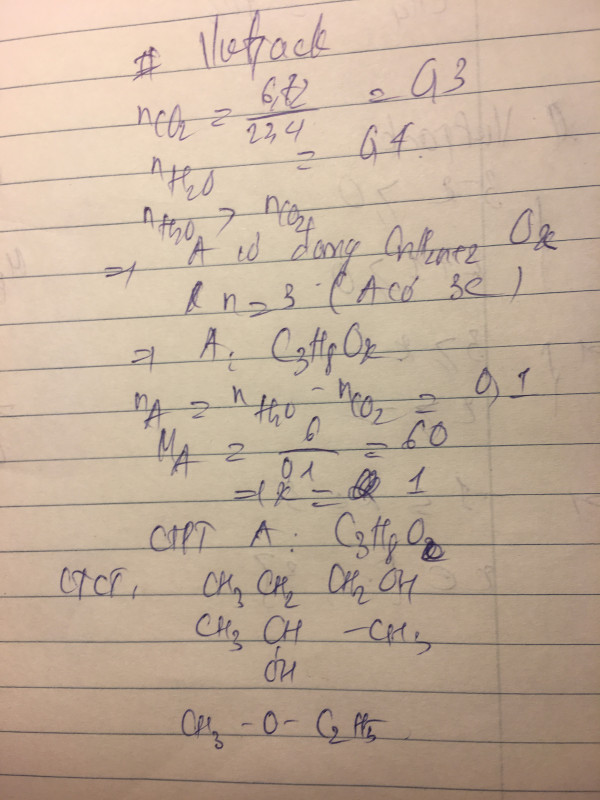 # Vutrack
nCO2 = 6,72/22,4 = 0,3
nH2O = 0,4
nH2O > nCO2
=> A có dạng CnH2n+2 Ox
n = 3 (A có 3C)
=> A: C3H8Ox
nA = nH2O - nCO2 = 0,1
MA = 6/0,1 = 60
=> x = 1
CTPT A: C3H8O
CTCT: CH3 CH2 CH2 OH
CH3 CH -CH3
OH
CH3 -O- C2H5